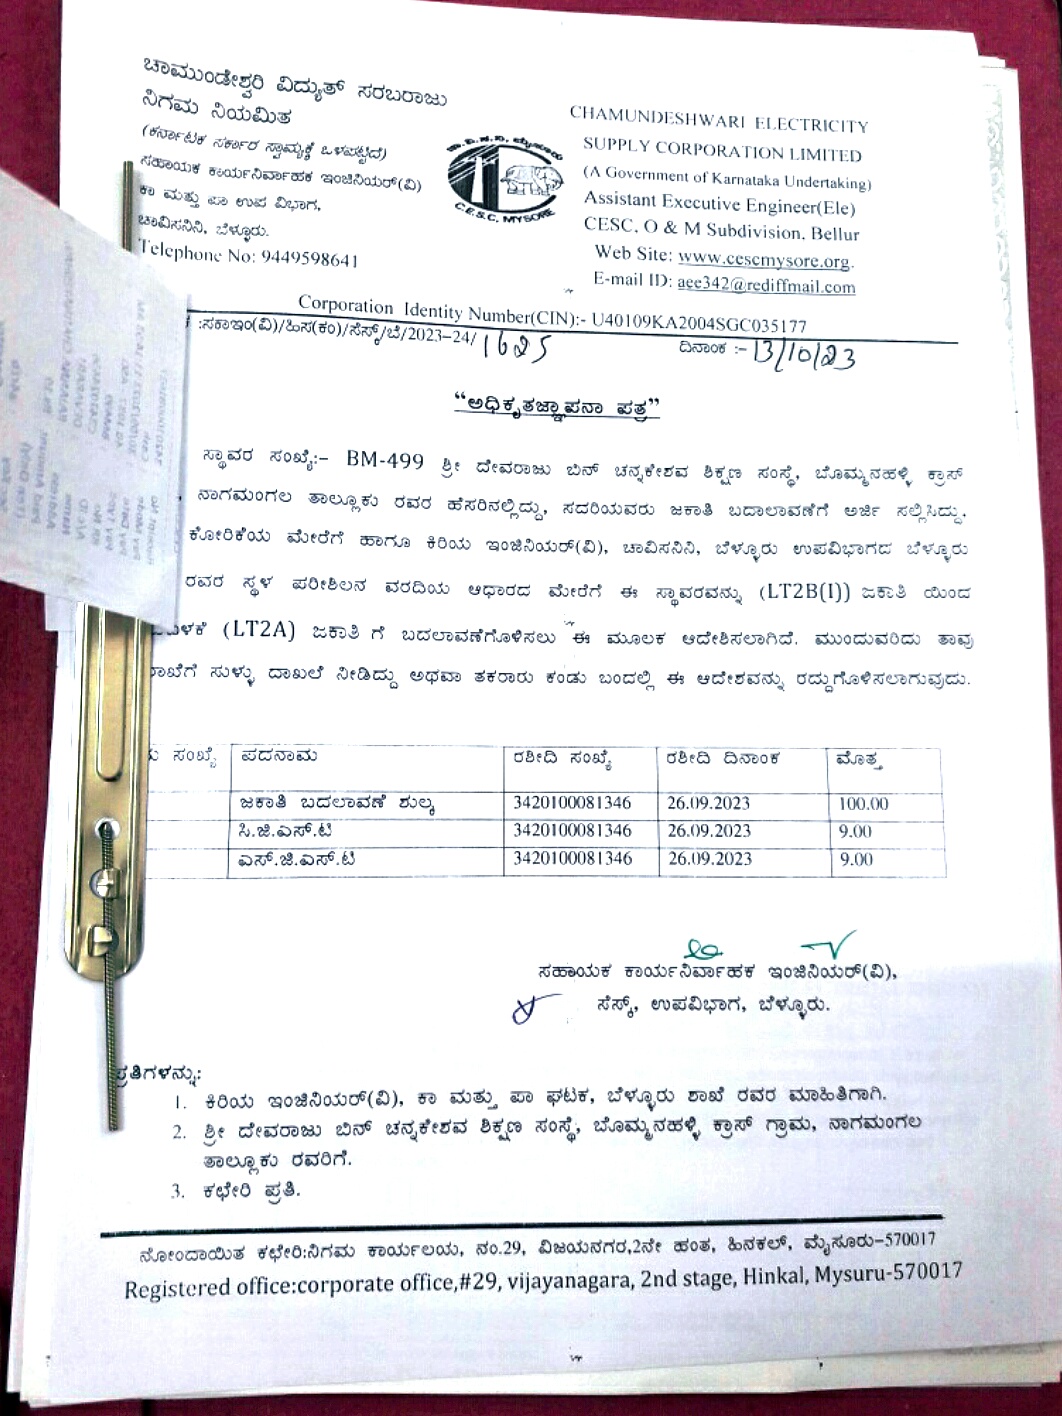 ಚಾಮುಂಡೇಶ್ವರಿ ವಿದ್ಯುತ್ ಸರಬರಾಜು
ನಿಗಮ ನಿಯಮಿತ
(ಕರ್ನಾಟಕ ಸರ್ಕಾರ ಸ್ವಾಮ್ಯಕ್ಕೆ ಒಳಪಟ್ಟಿದೆ)
ಸಹಾಯಕ ಕಾರ್ಯನಿರ್ವಾಹಕ ಇಂಜಿನಿಯರ್(ವಿ)
ಕಾ ಮತ್ತು ಪಾ ಉಪ ವಿಭಾಗ,
ಚಾವಿಸನಿನಿ, ಬೆಳ್ಳೂರು.
Telephone No: 9449598641
C.E.S.C. MYSORE
CHAMUNDESHWARI ELECTRICITY
SUPPLY CORPORATION LIMITED
(A Government of Karnataka Undertaking)
Assistant Executive Engineer(Ele)
CESC, O & M Subdivision, Bellur
Web Site: www.cescmysore.org.
E-mail ID: aee342@rediffmail.com
Corporation Identity Number(CIN):- U40109KA2004SGC035177
:ಸಕಾಇಂ(ವಿ)/ಹಿಸ(ಕಂ)/ಸೆಸ್ಕ್/ಬೆ/2023-24/1625 ದಿನಾಂಕ :- 13/10/23
“ಅಧಿಕೃತಜ್ಞಾಪನಾ ಪತ್ರ”
ಸ್ಥಾವರ ಸಂಖ್ಯೆ:- BM-499 ಶ್ರೀ ದೇವರಾಜು ಬಿನ್ ಚನ್ನಕೇಶವ ಶಿಕ್ಷಣ ಸಂಸ್ಥೆ, ಬೊಮ್ಮನಹಳ್ಳಿ ಕ್ರಾಸ್
ನಾಗಮಂಗಲ ತಾಲ್ಲೂಕು ರವರ ಹೆಸರಿನಲ್ಲಿದ್ದು, ಸದರಿಯವರು ಜಕಾತಿ ಬದಾಲಾವಣೆಗೆ ಅರ್ಜಿ ಸಲ್ಲಿಸಿದ್ದು,
ಕೋರಿಕೆಯ ಮೇರೆಗೆ ಹಾಗೂ ಕಿರಿಯ ಇಂಜಿನಿಯರ್(ವಿ), ಚಾವಿಸನಿನಿ, ಬೆಳ್ಳೂರು ಉಪವಿಭಾಗದ ಬೆಳ್ಳೂರು
ರವರ ಸ್ಥಳ ಪರೀಶಿಲನ ವರದಿಯ ಆಧಾರದ ಮೇರೆಗೆ ಈ ಸ್ಥಾವರವನ್ನು (LT2B(I)) ಜಕಾತಿ ಯಿಂದ
(LT2A) ಜಕಾತಿ ಗೆ ಬದಲಾವಣೆಗೊಳಿಸಲು ಈ ಮೂಲಕ ಆದೇಶಿಸಲಾಗಿದೆ. ಮುಂದುವರಿದು ತಾವು
ಸುಳ್ಳು ದಾಖಲೆ ನೀಡಿದ್ದು ಅಥವಾ ತಕರಾರು ಕಂಡು ಬಂದಲ್ಲಿ ಈ ಆದೇಶವನ್ನು ರದ್ದುಗೊಳಿಸಲಾಗುವುದು.
ಸಂಖ್ಯೆ ಪದನಾಮ ರಶೀದಿ ಸಂಖ್ಯೆ ರಶೀದಿ ದಿನಾಂಕ ಮೊತ್ತ
ಜಕಾತಿ ಬದಲಾವಣೆ ಶುಲ್ಕ 3420100081346 26.09.2023 100.00
ಸಿ.ಜಿ.ಎಸ್.ಟಿ 3420100081346 26.09.2023 9.00
ಎಸ್.ಜಿ.ಎಸ್.ಟಿ 3420100081346 26.09.2023 9.00
ಸಹಾಯಕ ಕಾರ್ಯನಿರ್ವಾಹಕ ಇಂಜಿನಿಯರ್(ವಿ),
ಸೆಸ್ಕ್, ಉಪವಿಭಾಗ, ಬೆಳ್ಳೂರು.
ಪ್ರತಿಗಳನ್ನು:
1. ಕಿರಿಯ ಇಂಜಿನಿಯರ್(ವಿ), ಕಾ ಮತ್ತು ಪಾ ಘಟಕ, ಬೆಳ್ಳೂರು ಶಾಖೆ ರವರ ಮಾಹಿತಿಗಾಗಿ.
2. ಶ್ರೀ ದೇವರಾಜು ಬಿನ್ ಚನ್ನಕೇಶವ ಶಿಕ್ಷಣ ಸಂಸ್ಥೆ, ಬೊಮ್ಮನಹಳ್ಳಿ ಕ್ರಾಸ್ ಗ್ರಾಮ, ನಾಗಮಂಗಲ
ತಾಲ್ಲೂಕು ರವರಿಗೆ.
3. ಕಛೇರಿ ಪ್ರತಿ.
ನೋಂದಾಯಿತ ಕಛೇರಿ:ನಿಗಮ ಕಾರ್ಯಲಯ, ನಂ.29, ವಿಜಯನಗರ,2ನೇ ಹಂತ, ಹಿನಕಲ್, ಮೈಸೂರು-570017
Registered office:corporate office,#29, vijayanagara, 2nd stage, Hinkal, Mysuru-570017